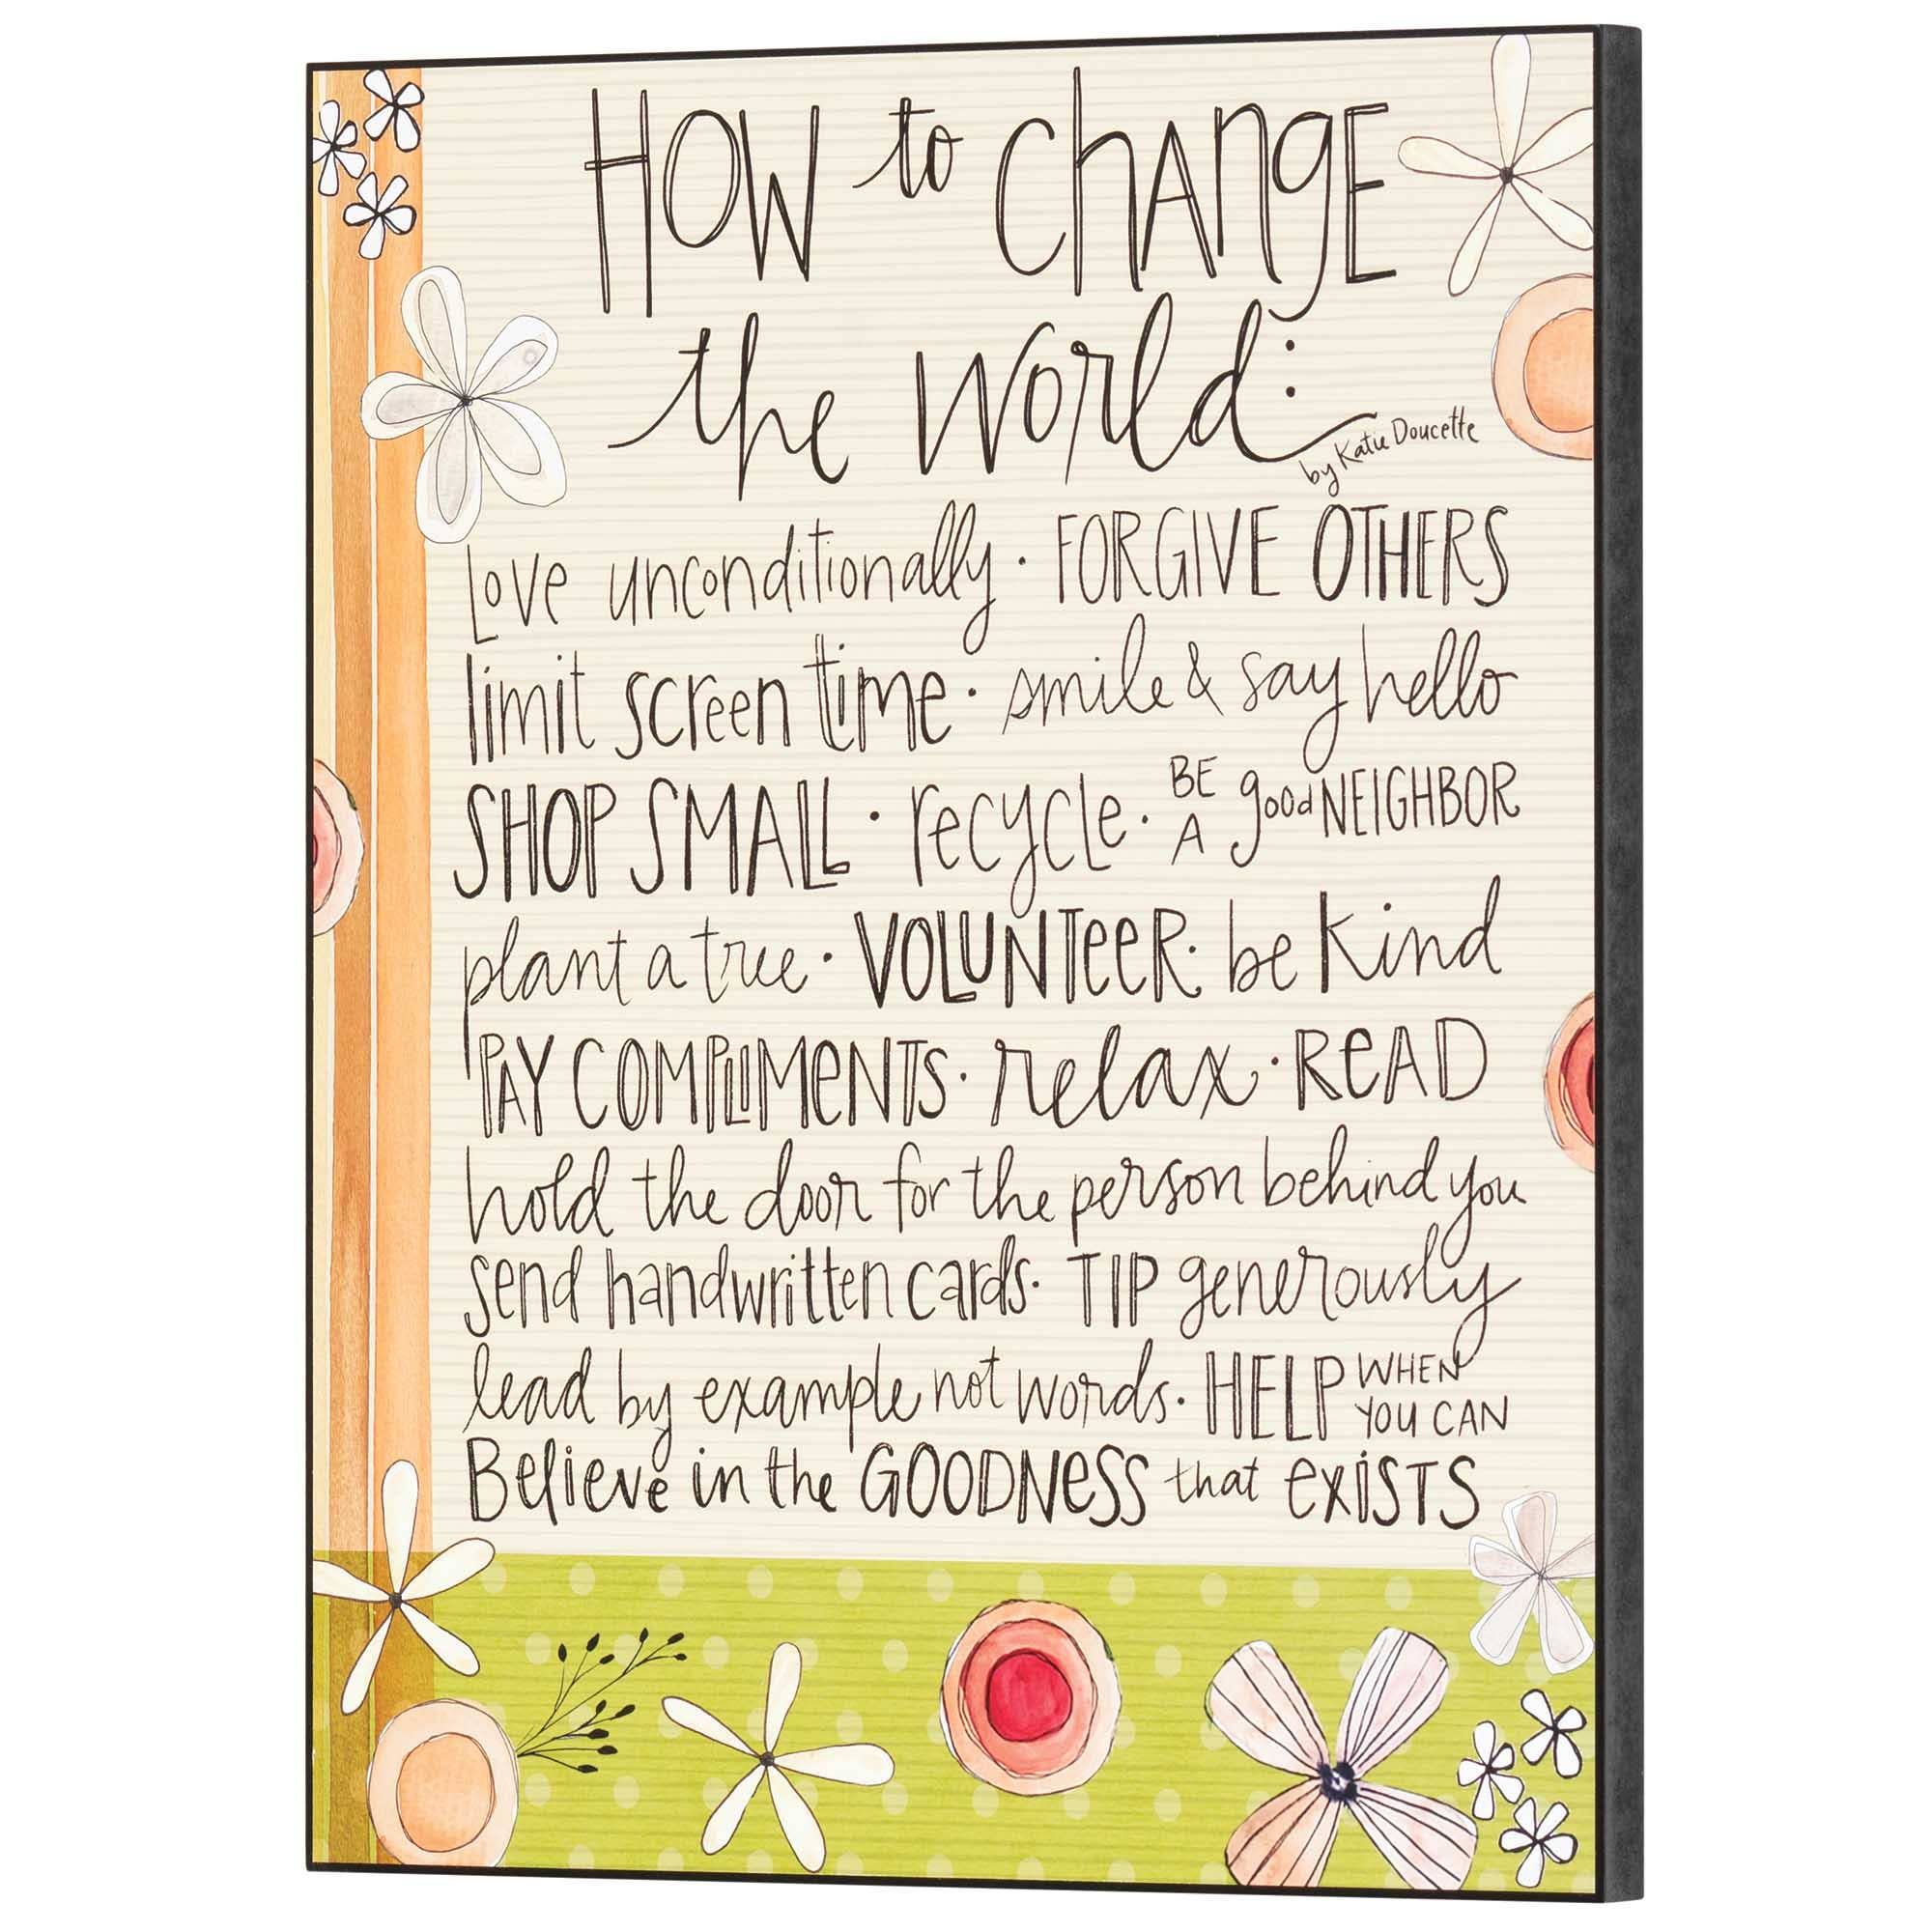 HOW to chANgE
the World:
by Katie Doucette
Love unconditionally · FORGIVE OTHERS
limit screen time · smile & say hello
SHOP SMALL · recycle · BE A good NEIGHBOR
plant a tree · VOLUNTeeR · be kind
PAY COMPLIMeNTS · relax · ReAD
hold the door for the person behind you
send handwritten cards · TIP generously
lead by example not words · HELP WHEN YOU CAN
Believe in the GOODNeSS that exiSTS